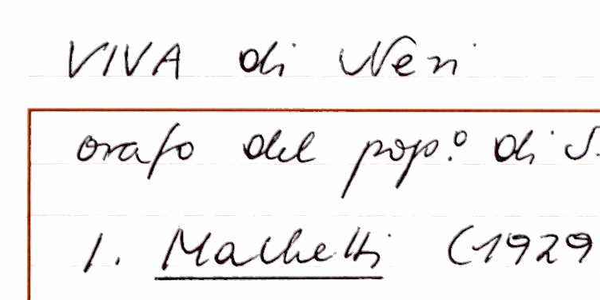 VIVA di Neri
orafo del pop.º di S.
1. Machetti (1929